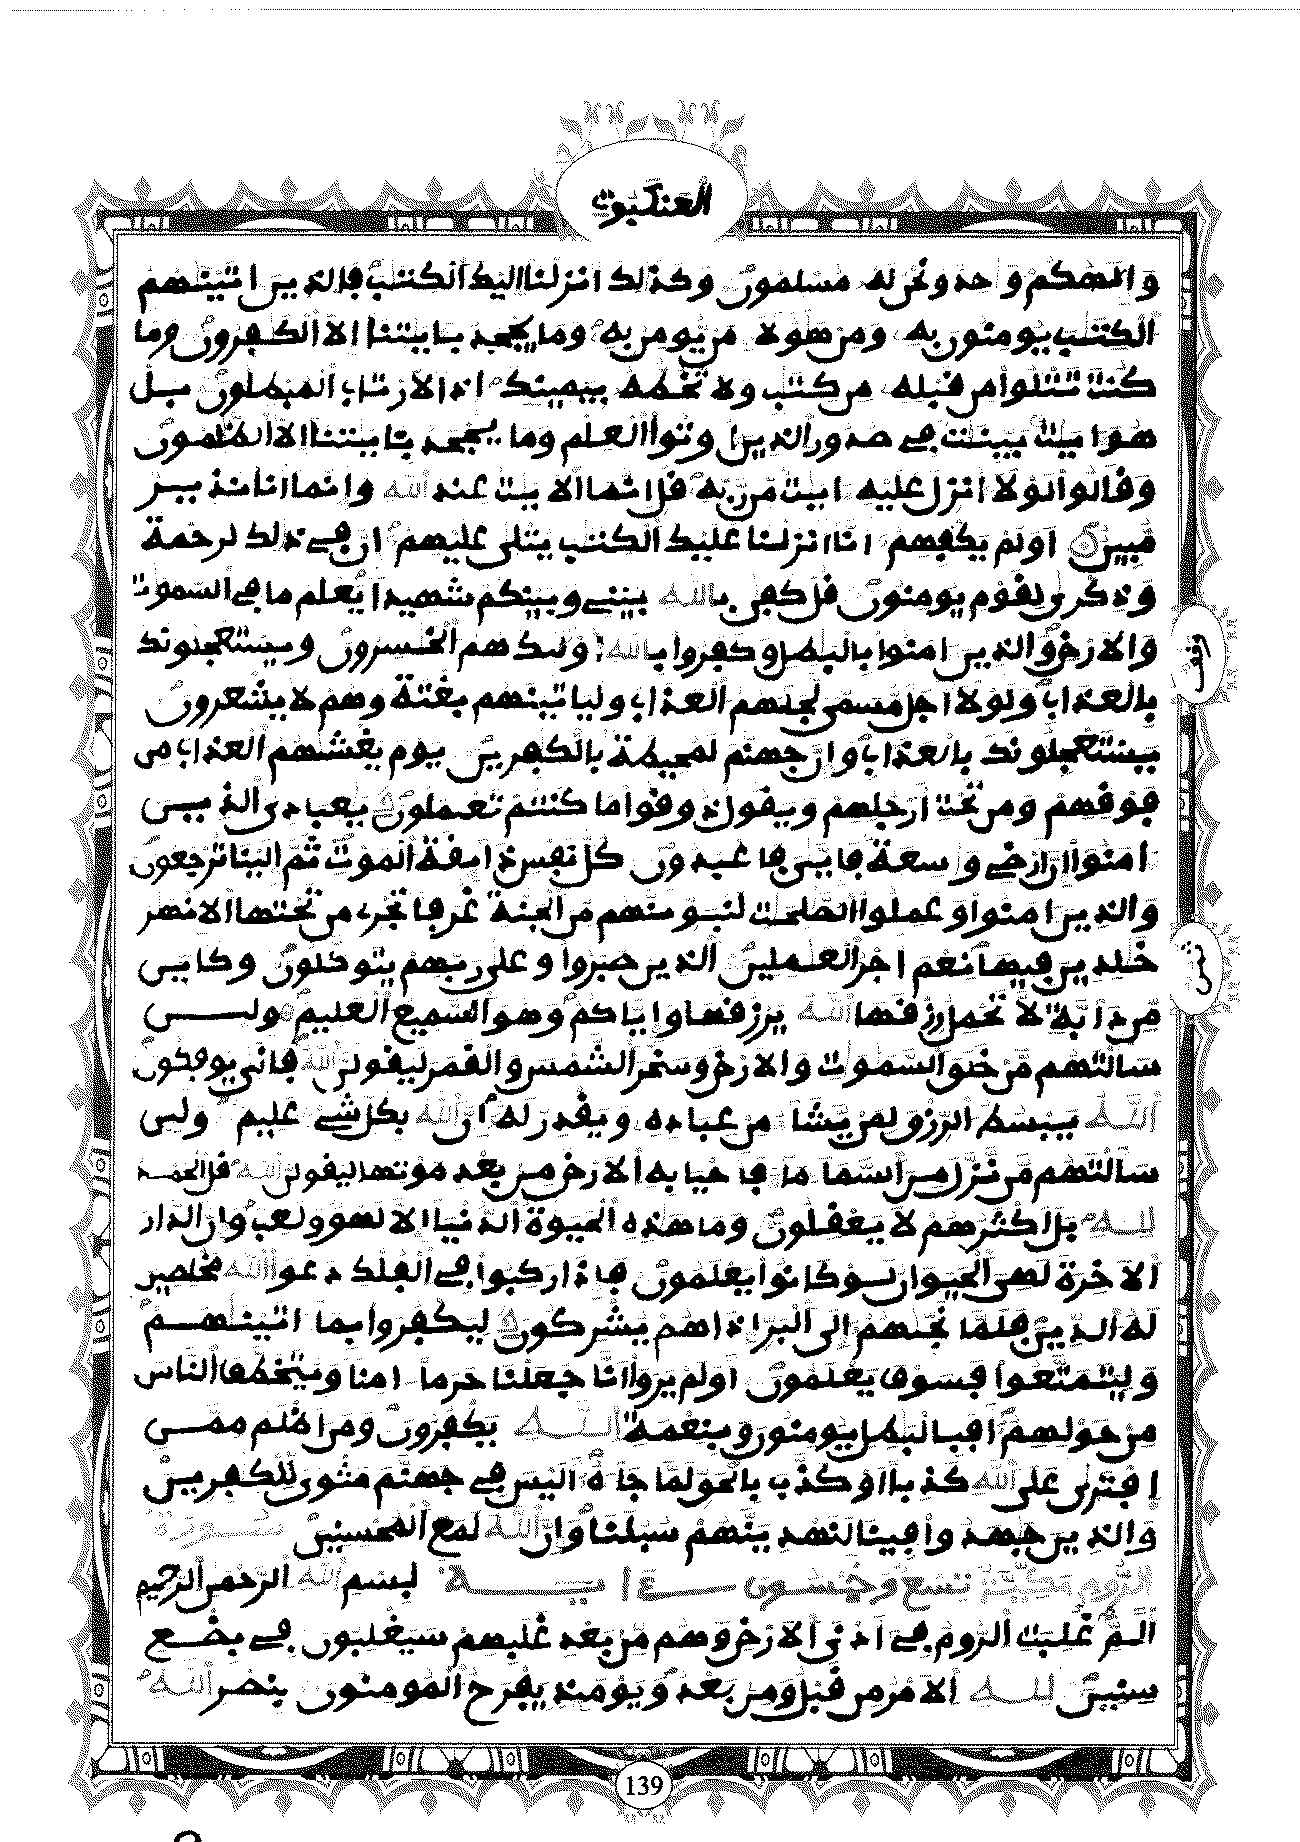 العنكبوت
والهكم وحد ونحن له مسلمون وكذلك انزلنا اليك الكتب فالذين اتينهم
الكتب يومنون به ومن هولا من يومن به وما يجحد بايتنا الا الكفرون وما
كنت تتلوا من قبله من كتب ولا تخطه بيمينك اذا لارتاب المبطلون بل
هو ايت بينت في صدور الذين اوتوا العلم وما يجحد بايتنا الا الظلمون
وقالوا لولا انزل عليه ايت من ربه قل انما الايت عند الله وانما انا نذير
مبين اولم يكفهم انا انزلنا عليك الكتب يتلى عليهم ان في ذلك لرحمة
وذكرى لقوم يومنون قل كفى بالله بيني وبينكم شهيدا يعلم ما في السموت
والارض والذين امنوا بالبطل وكفروا بالله اوليك هم الخسرون ويستعجلونك
وقف
بالعذاب ولولا اجل مسمى لجاهم العذاب ولياتينهم بغتة وهم لا يشعرون
يستعجلونك بالعذاب وان جهنم لمحيطة بالكفرين يوم يغشهم العذاب من
فوقهم ومن تحت ارجلهم ويقول ذوقوا ما كنتم تعملون يعبادي الذين
امنوا ان ارضي وسعة فايى فاعبدون كل نفس ذايقة الموت ثم الينا ترجعون
والذين امنوا وعملوا الصلحت لنبوينهم من الجنة غرفا تجري من تحتها الانهر
خلدين فيها نعم اجر العملين الذين صبروا وعلى ربهم يتوكلون وكاين
ثمن
من دابة لا تحمل رزقها الله يرزقها واياكم وهو السميع العليم ولين
سالتهم من خلق السموت والارض وسخر الشمس والقمر ليقولن الله فانى يوفكون
الله يبسط الرزق لمن يشا من عباده ويقدر له ان الله بكل شي عليم ولين
سالتهم من نزل من السما ما فاحيا به الارض من بعد موتها ليقولن الله قل الحمد
لله بل اكثرهم لا يعقلون وما هذه الحيوة الدنيا الا لهو ولعب وان الدار
الاخرة لهي الحيوان لو كانوا يعلمون فاذا ركبوا في الفلك دعوا الله مخلصين
له الدين فلما نجهم الى البر اذا هم يشركون ليكفروا بما اتينهم
وليتمتعوا فسوف يعلمون اولم يروا انا جعلنا حرما امنا ويتخطف الناس
من حولهم افبالبطل يومنون وبنعمة الله يكفرون ومن اظلم ممن
افترى على الله كذبا او كذب بالحق لما جاه اليس في جهنم مثوى للكفرين
والذين جهدوا فينا لنهدينهم سبلنا وان الله لمع المحسنين سورة
الروم مكية تسع وخمسون اية بسم الله الرحمن الرحيم
الم غلبت الروم في ادنى الارض وهم من بعد غلبهم سيغلبون في بضع
سنين لله الامر من قبل ومن بعد ويوميذ يفرح المومنون بنصر الله
139